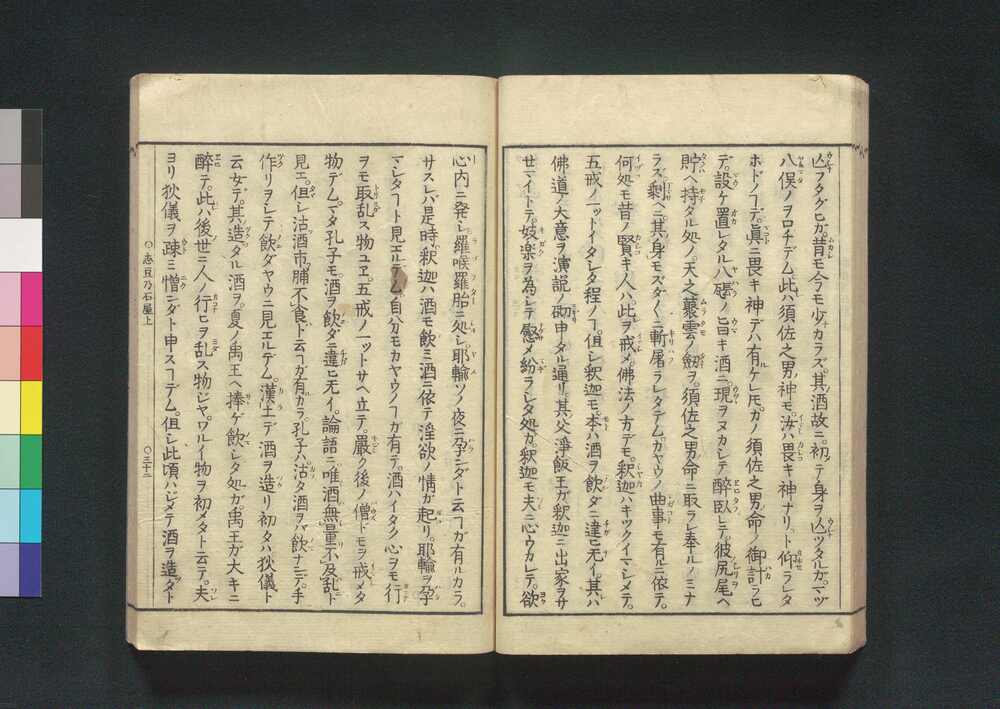 凶フタグヒガ。昔モ今モ少カラズ。其酒故ニ。初テ身ヲ亾ツタルガ。マヅ
八俣ノヲロチデム。此ハ須佐之男ノ神モ。汝ハ畏キ神ナリ。ト仰ラレタ
ホドノヿデ。眞ニ畏キ神デハ有ケレドモ。ガノ須佐之男命ノ御計ラヒ
デ。設ケ置レタル八𤭖ノ旨キ酒ニ。現ヲヌカシテ。醉臥レテ。彼尻尾ヘ
貯ヘ持タル処ノ。天之藂雲ノ劔ヲ。須佐之男命ニ取ラレ奉ルノミナ
ラズ。剰ヘニ。其身モズダ〳〵ニ斬屠ラレタデム。カヤウノ曲事モ有ルニ依テ。
何処モ昔ノ賢キノ人ハ。此ヲ戒メ。佛法ノ方デモ。釈迦ハキツクイマシメテ。
五戒ノ一ットイタシタ程ノヿ。但シ釈迦モ。本ハ酒ヲ飲ダニ違ヒ无イ。其ハ
佛道ノ大意ヲ演説ノ砌申タル通リ。其父淨飯王ガ釈迦ニ出家ヲサ
セマイトテ。妓楽ヲ為シテ。慰メ紛ラシタ処ガ。釈迦モ夫ニ心ウカレテ。欲
心内ニ発シ。羅喉羅胎ニ処シ。耶輪ソノ夜ニ孕ンダト云ヿガ有ルカラ。
サスレバ是時釈迦ハ酒モ飲ミ。酒ニ依テ淫欲ノ情ガ起リ。耶輪ヲ孕
マシタヿト見エルデム。自分モカヤウノヿガ有テ。酒ハイタク心ヲモ行
ヲモ取乱ス物ユヱ。五戒ノ一ットサヘ立テ。嚴ク後ノ僧ドモヲ戒メタ
物デム。マタ孔子モ。酒ヲ飲ダニ違ヒ无イ。論語ニ唯酒無量不及乱ト
見エ。但シ沽酒市脯不食ト云ヿガ有カラ。孔子ハ沽タ酒ヲバ飲ナニデ。手
作リヲシテ飲ダヤウニ見エルデム。漢土デ酒ヲ造リ初タハ狄儀ト
云女デ。其造タル酒ヲ。夏ノ禹王ヘ捧ゲ飲シタ処ガ。禹王ガ大キニ
醉テ。此ハ後世ニ人ノ行ヒヲ乱ス物ジヤ。ワルイ物ヲ初メタト云テ。夫
ヨリ狄儀ヲ疎ミ憎ンダト申スヿデム。但シ此頃ハジメテ酒ヲ造ダト
○志豆乃石屋上　○三十三